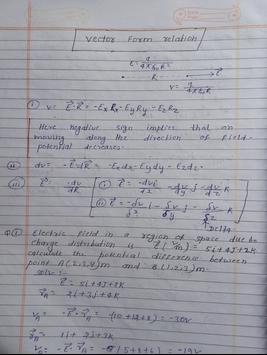 Vector Form relation
E = q/4πε₀R²
V = q/4πε₀R
① V = -E⃗·R⃗ = -ExRx - EyRy - EzRz
Here negative sign implies that on
moving along the direction of field
potential decreases.
ⅱ dv = -E⃗·dR⃗ = -Exdx - Eydy - Ezdz
ⅲ E⃗ = -dv/dR
ⅰ E⃗ = -dv/dx i - dv/dy j - dv/dz K
ⅱ E⃗ = -δv/δx i - δv/δy j - δv/δz K
Delta
Q① Electric field in a region of space due to
charge distribution is E⃗ (V/m) = 5i+4j+2K
calculate the potential difference between
point A(2,3,4)m and B(1,2,3)m.
Solu:- E⃗ = 5i+4j+2K
= 2i+3j+4K
= -(10+12+8) = -30V
= 1i+2j+3K
= -(5+8+6) = -19V